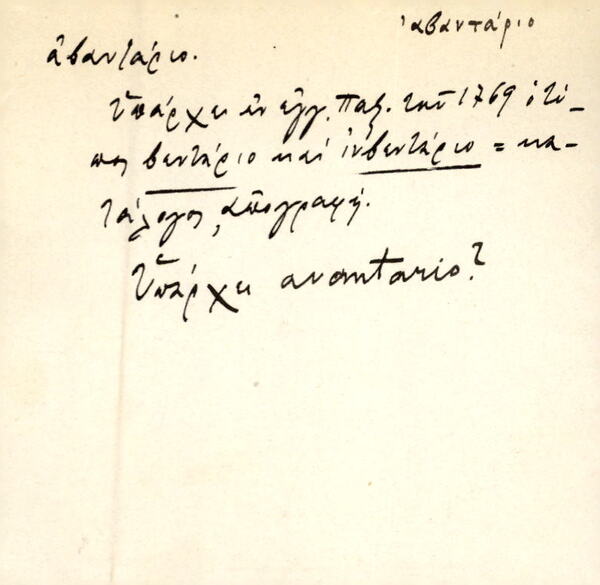 ἀβαντάριο
ἀβαντάριο.
Ὑπάρχει ἐν ἐγγ. Παξ. τοῦ 1769 ὁ τύ-
πος βεντάριο καί ἰνβεντάριο = κα-
τάλογος, ἀπογραφή.
Ὑπάρχει avantario?